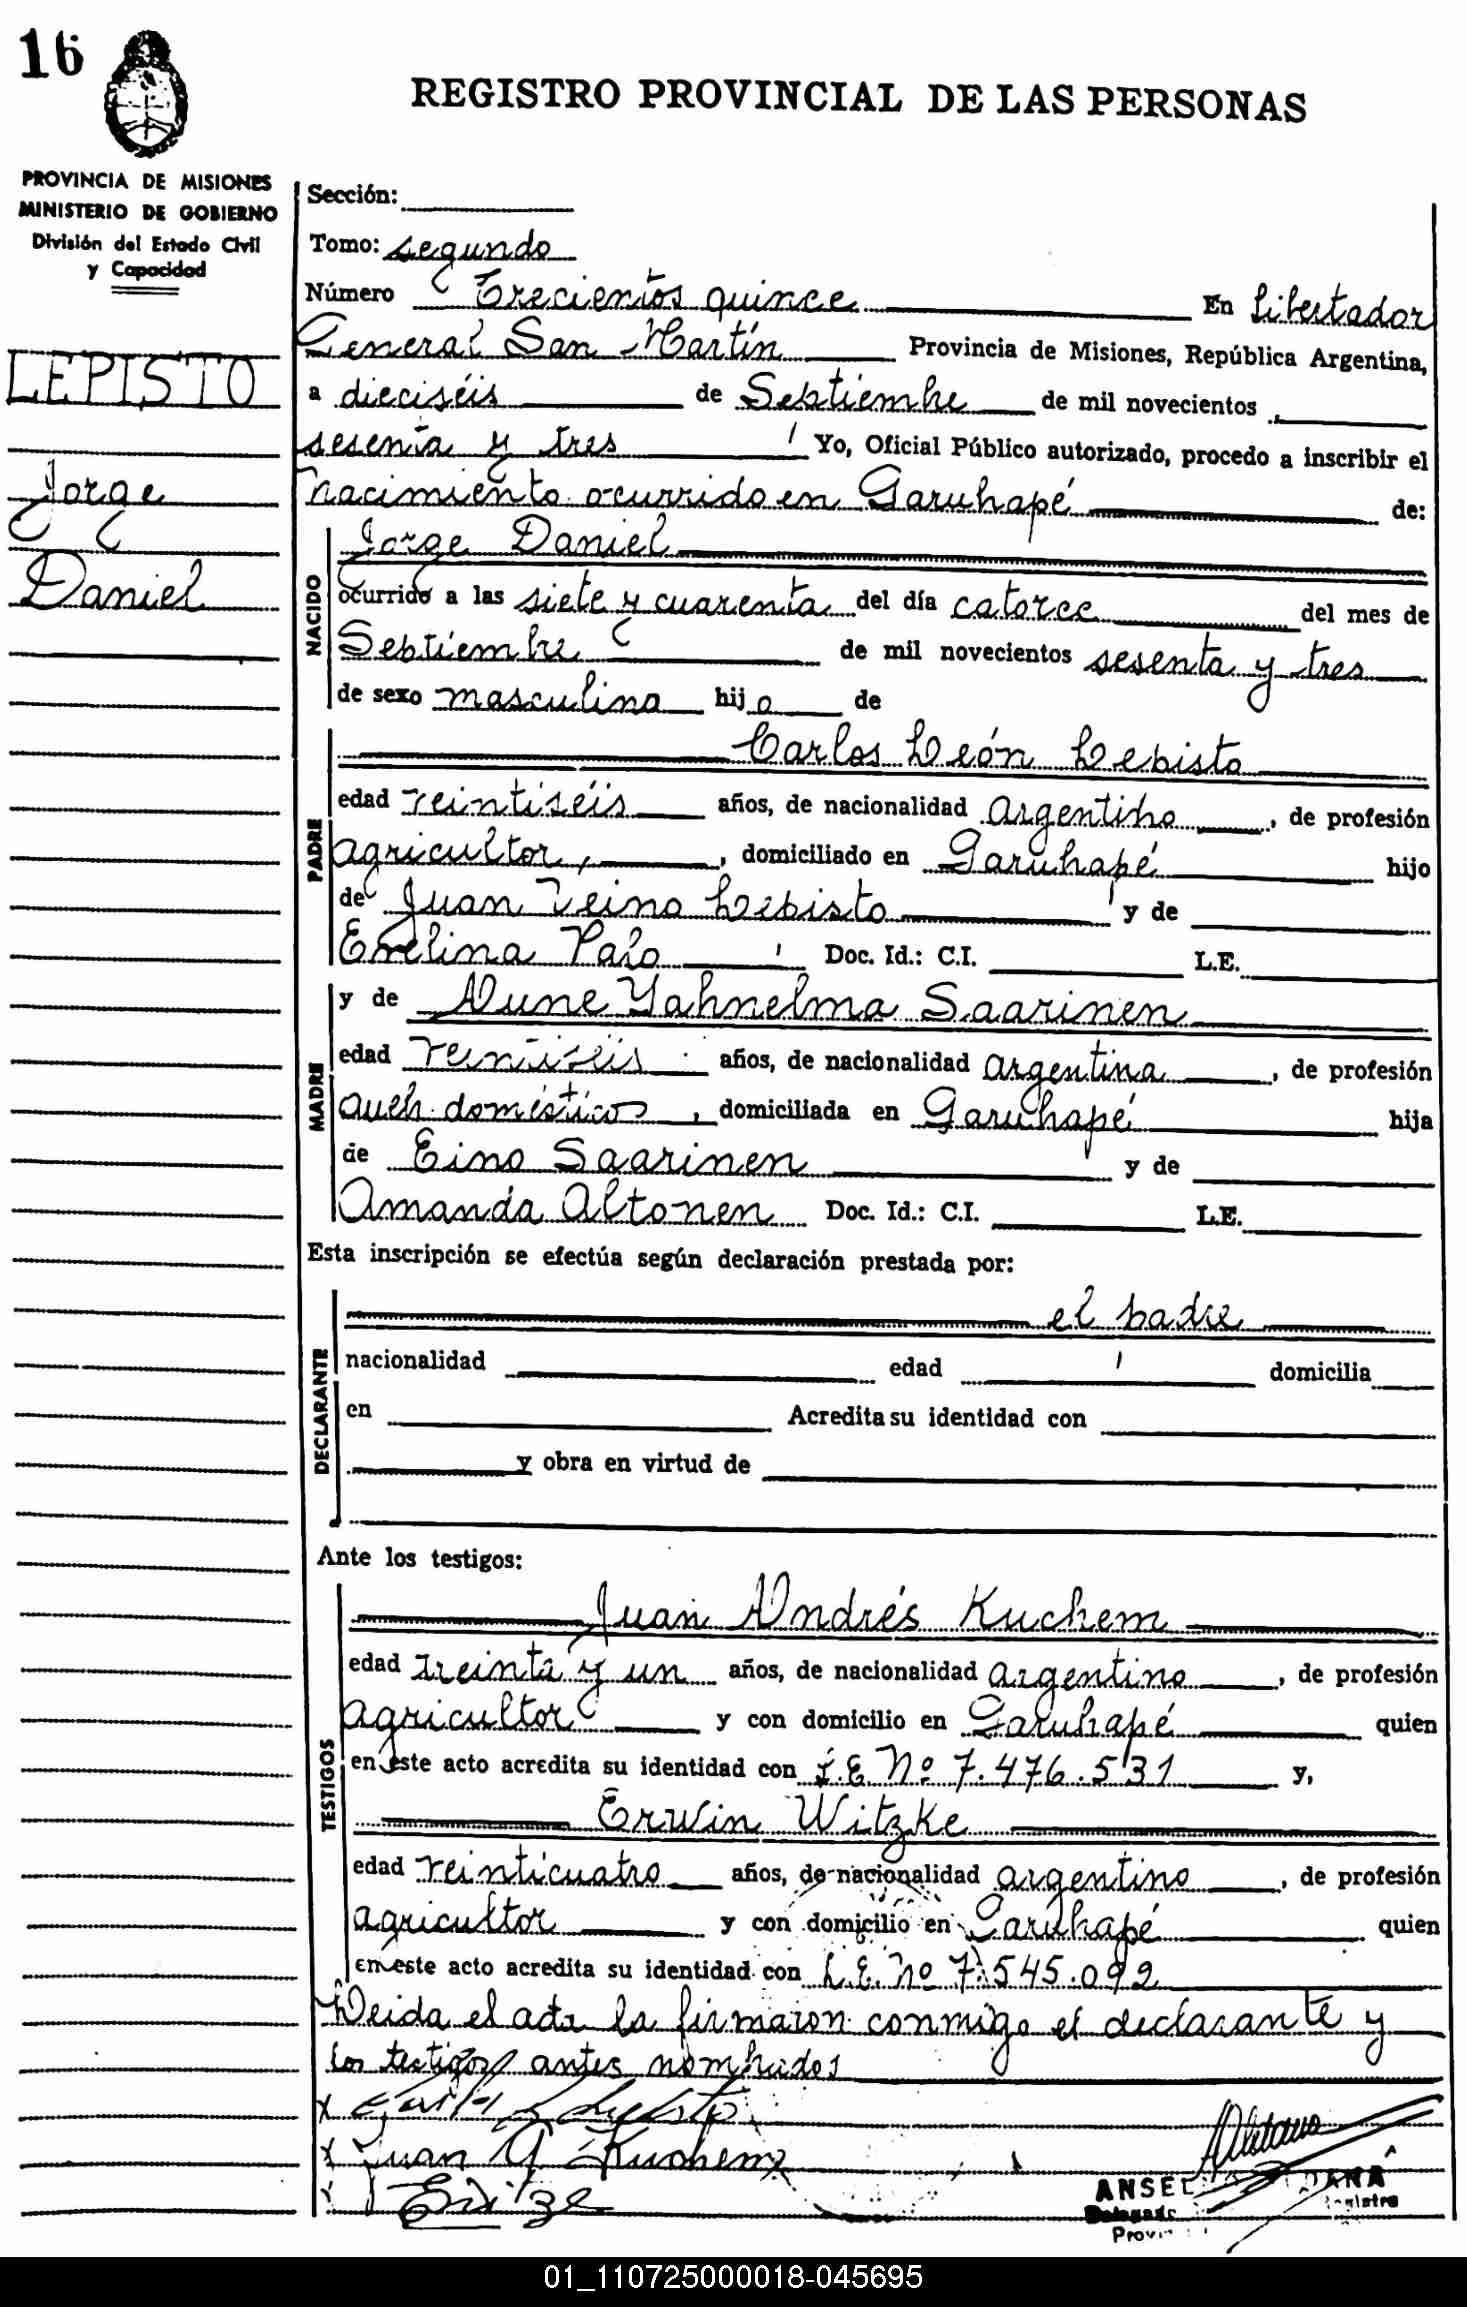 16
REGISTRO PROVINCIAL DE LAS PERSONAS
PROVINCIA DE MISIONES
MINISTERIO DE GOBIERNO
División del Estado Civil
y Capacidad
LEPISTO
Jorge
Daniel
Sección:
Tomo: segundo
Número Trecientos quince En Libertador
General San Martín Provincia de Misiones, República Argentina,
a dieciséis de Septiembre de mil novecientos
sesenta y tres Yo, Oficial Público autorizado, procedo a inscribir el
nacimiento ocurrido en Garuhapé de:
NACIDO
Jorge Daniel
ocurrido a las siete y cuarenta del día catorce del mes de
Septiembre de mil novecientos sesenta y tres
de sexo masculino hijo de
PADRE
Carlos León Lepisto
edad veintiséis años, de nacionalidad Argentino, de profesión
agricultor, domiciliado en Garuhapé hijo
de Juan Veino Lepisto y de
Evelina Palo Doc. Id.: C.I. L.E.
MADRE
y de Aune Yahnelma Saarinen
edad veintiséis años, de nacionalidad argentina, de profesión
queh. domésticos, domiciliada en Garuhapé hija
de Eino Saarinen y de
Amanda Altonen Doc. Id.: C.I. L.E.
Esta inscripción se efectúa según declaración prestada por:
DECLARANTE
el padre
nacionalidad edad domicilia
en Acredita su identidad con
y obra en virtud de
Ante los testigos:
TESTIGOS
Juan Andrés Kuchem
edad treinta y un años, de nacionalidad argentino, de profesión
agricultor y con domicilio en Garuhapé quien
en este acto acredita su identidad con L.E. Nº 7.476.531 y,
Erwin Witzke
edad veinticuatro años, de nacionalidad argentino, de profesión
agricultor y con domicilio en Garuhapé quien
en este acto acredita su identidad con L.E. Nº 7.545.092
Leida el acta la firmaron conmigo el declarante y
los testigos antes nombrados
Juan A Kuchem
ANSEL
Delegado
Provin
01_110725000018-045695